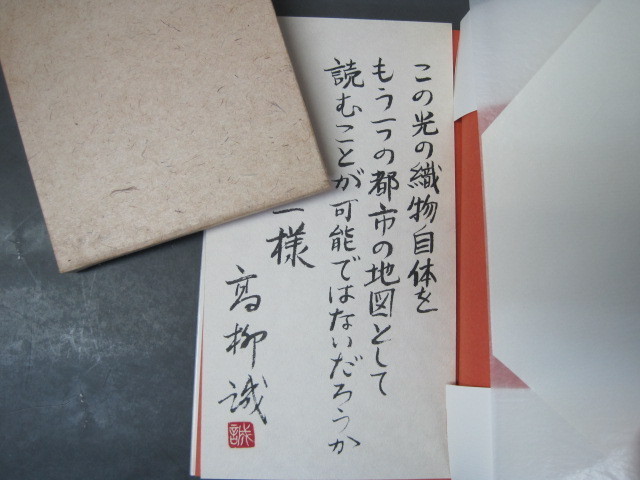 この光の織物自体を
もう一つの都市の地図として
読むことが可能ではないだろうか
一様
高柳誠
誠